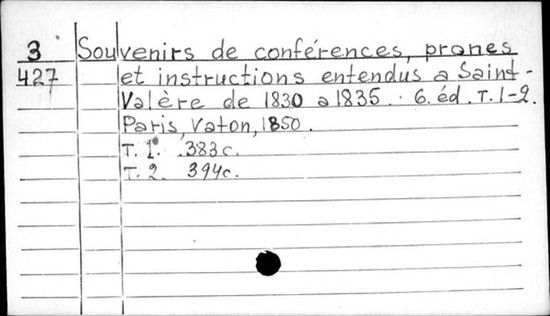 3 Souvenirs de conférences, prones
427 et instructions entendus a Saint-
Valère de 1830 a 1835. 6. éd. T. 1-2.
Paris, Vaton, 1850.
T. 1. 383c.
T. 2. 394c.